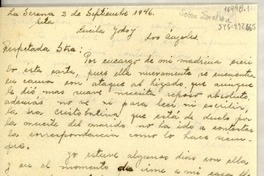 La Serena 2 de Septiembre 1946.
Srta
Lucila Godoy
Los Ángeles.
Respetada Stra:
Por encargo de mi madrina escri
bo esta carta, pues ella nuevamente se encuentra
en cama con ataque al hígado que aunque
le dió mas suave necesita reposo absoluto,
además no ve ni para leer ni escribir,
la sra Cristantina que está de duelo por
la muerte del marido no ha ido a contestar
la correspondencia como lo hace siem-
pre.
Yo estuve algunos días con ella
y en el momento me vine a mi casa